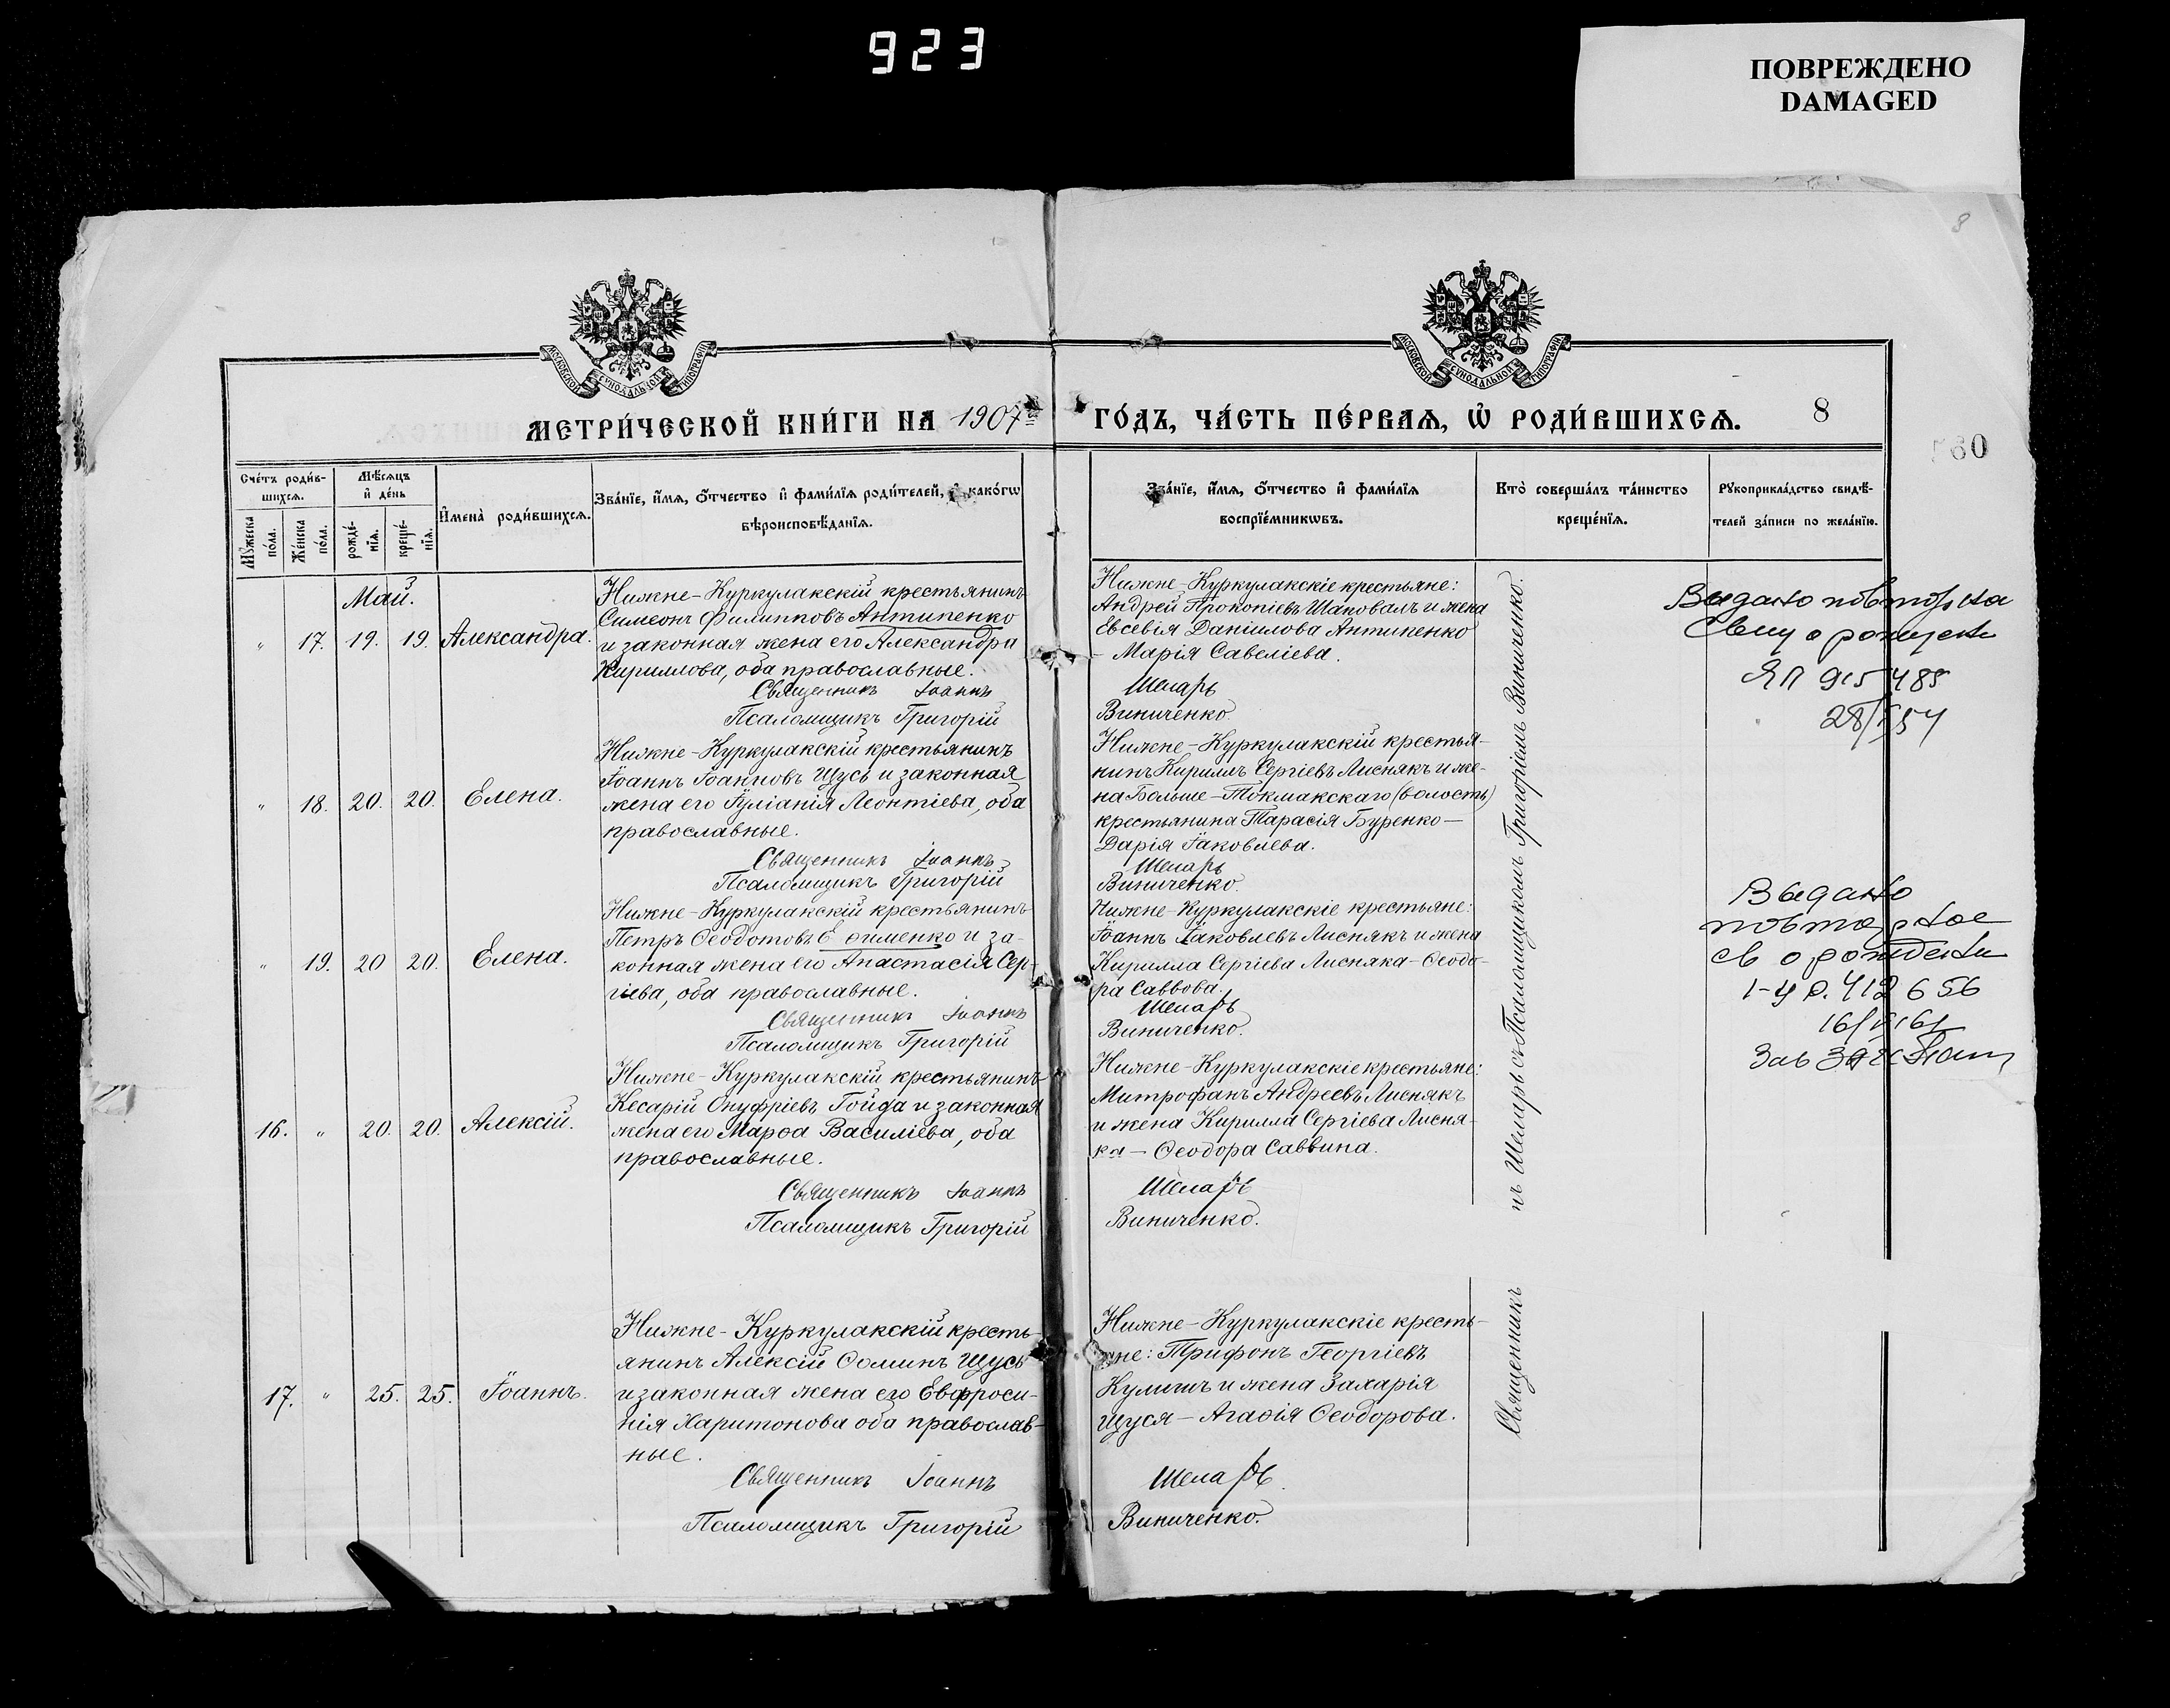 923
ПОВРЕЖДЕНО
DAMAGED
8
МОСКОВСКОЙ СѴНОДАЛЬНОЙ ТИПОГРАФІИ
МОСКОВСКОЙ СѴНОДАЛЬНОЙ ТИПОГРАФІИ
МЕТРИ́ЧЕСКОЙ КНИ́ГИ НА 1907й
ГО́ДЪ, ЧА́СТЬ ПЕ́РВАѦ, Ѡ҆ РОДИ́ВШИХСѦ.
8
60
Сче́тъ роди́в-
шихсѧ.
Мꙋ́жеска по́ла.
Же́нска по́ла.
Мѣ́сѧцъ
и҆ де́нь
рожде́-
нїѧ.
креще́-
нїѧ.
И҆мена̀ роди́вшихсѧ.
Зва́нїе, и҆́мѧ, ѻ҆́тчество и҆ фами́лїѧ роди́телей, и҆ како́гѡ
вѣроисповѣ́данїѧ.
Зва́нїе, и҆́мѧ, ѻ҆́тчество и҆ фами́лїѧ
воспрїе́мникѡвъ.
Кто̀ соверша́лъ та́инство
креще́нїѧ.
Рꙋкоприкла́дство свидѣ́-
телей за́писи по жела́нїю.
Май.
" 17. 19. 19. Александра.
Нижне-Куркулакскій крестьянинъ
Симеонъ Филипповъ Антипенко
и законная жена его Александра
Кириллова, оба православные.
Священникъ Іоаннъ
Псаломщикъ Григорій
Нижне-Куркулакскіе крестьяне:
Андрей Прокопіевъ Шаповалъ и жена
Евсевія Даніилова Антипенко
- Марія Савеліева.
Шепарь
Виниченко.
Выдано повторна
Свиду о рожден
ЯП 915489
" 18. 20. 20. Елена.
Нижне-Куркулакскій крестьянинъ
Іоаннъ Іоанновъ Щусь и законная
жена его Іуліанія Леонтіева, оба
православные.
Священникъ Іоаннъ
Псаломщикъ Григорій
Нижне-Куркулакскій крестья-
нинъ Кириллъ Сергіевъ Лиснякъ и же-
на Больше-Токмакскаго (волость)
крестьянина Тарасія Буренко-
Дарія Іаковлева.
Шепарь
Виниченко.
" 19. 20 20. Елена.
Нижне-Куркулакскій крестьянинъ
Петръ Ѳеодотовъ Еѳименко и за-
конная жена его Анастасія Сер-
гіева, оба православные.
Священникъ Іоаннъ
Псаломщикъ Григорій
Нижне-Куркулакскіе крестьяне:
Іоаннъ Іаковлевъ Лиснякъ и жена
Кирилла Сергіева Лисняка-Ѳеодо-
ра Саввова.
Шепарь
Виниченко.
Выдано
повторное
св о рождени
412656
16. " 20. 20. Алексій.
Нижне-Куркулакскій крестьянинъ
Кесарій Онуфріевъ Гойда и законная
жена его Марѳа Василіева, оба
православные.
Священникъ Іоаннъ
Псаломщикъ Григорій
Нижне-Куркулакскіе крестьяне:
Митрофанъ Андреевъ Лиснякъ
и жена Кирилла Сергіева Лисня-
ка - Ѳеодора Саввина.
Шепарь
Виниченко.
17. " 25. 25. Іоаннъ.
Нижне-Куркулакскій кресть-
янинъ Алексій Ѳоминъ Щусь
и законная жена его Евфроси-
нія Харитонова оба православ-
ные.
Священникъ Іоаннъ
Псаломщикъ Григорій
Нижне-Куркулакскіе кресть-
яне: Трифонъ Георгіевъ
Куличъ и жена Захарія
Щуся - Агаѳія Ѳеодорова.
Шепарь
Виниченко.
Священникъ
нъ Шепарь съ Псаломщикомъ Григоріемъ Виниченко.